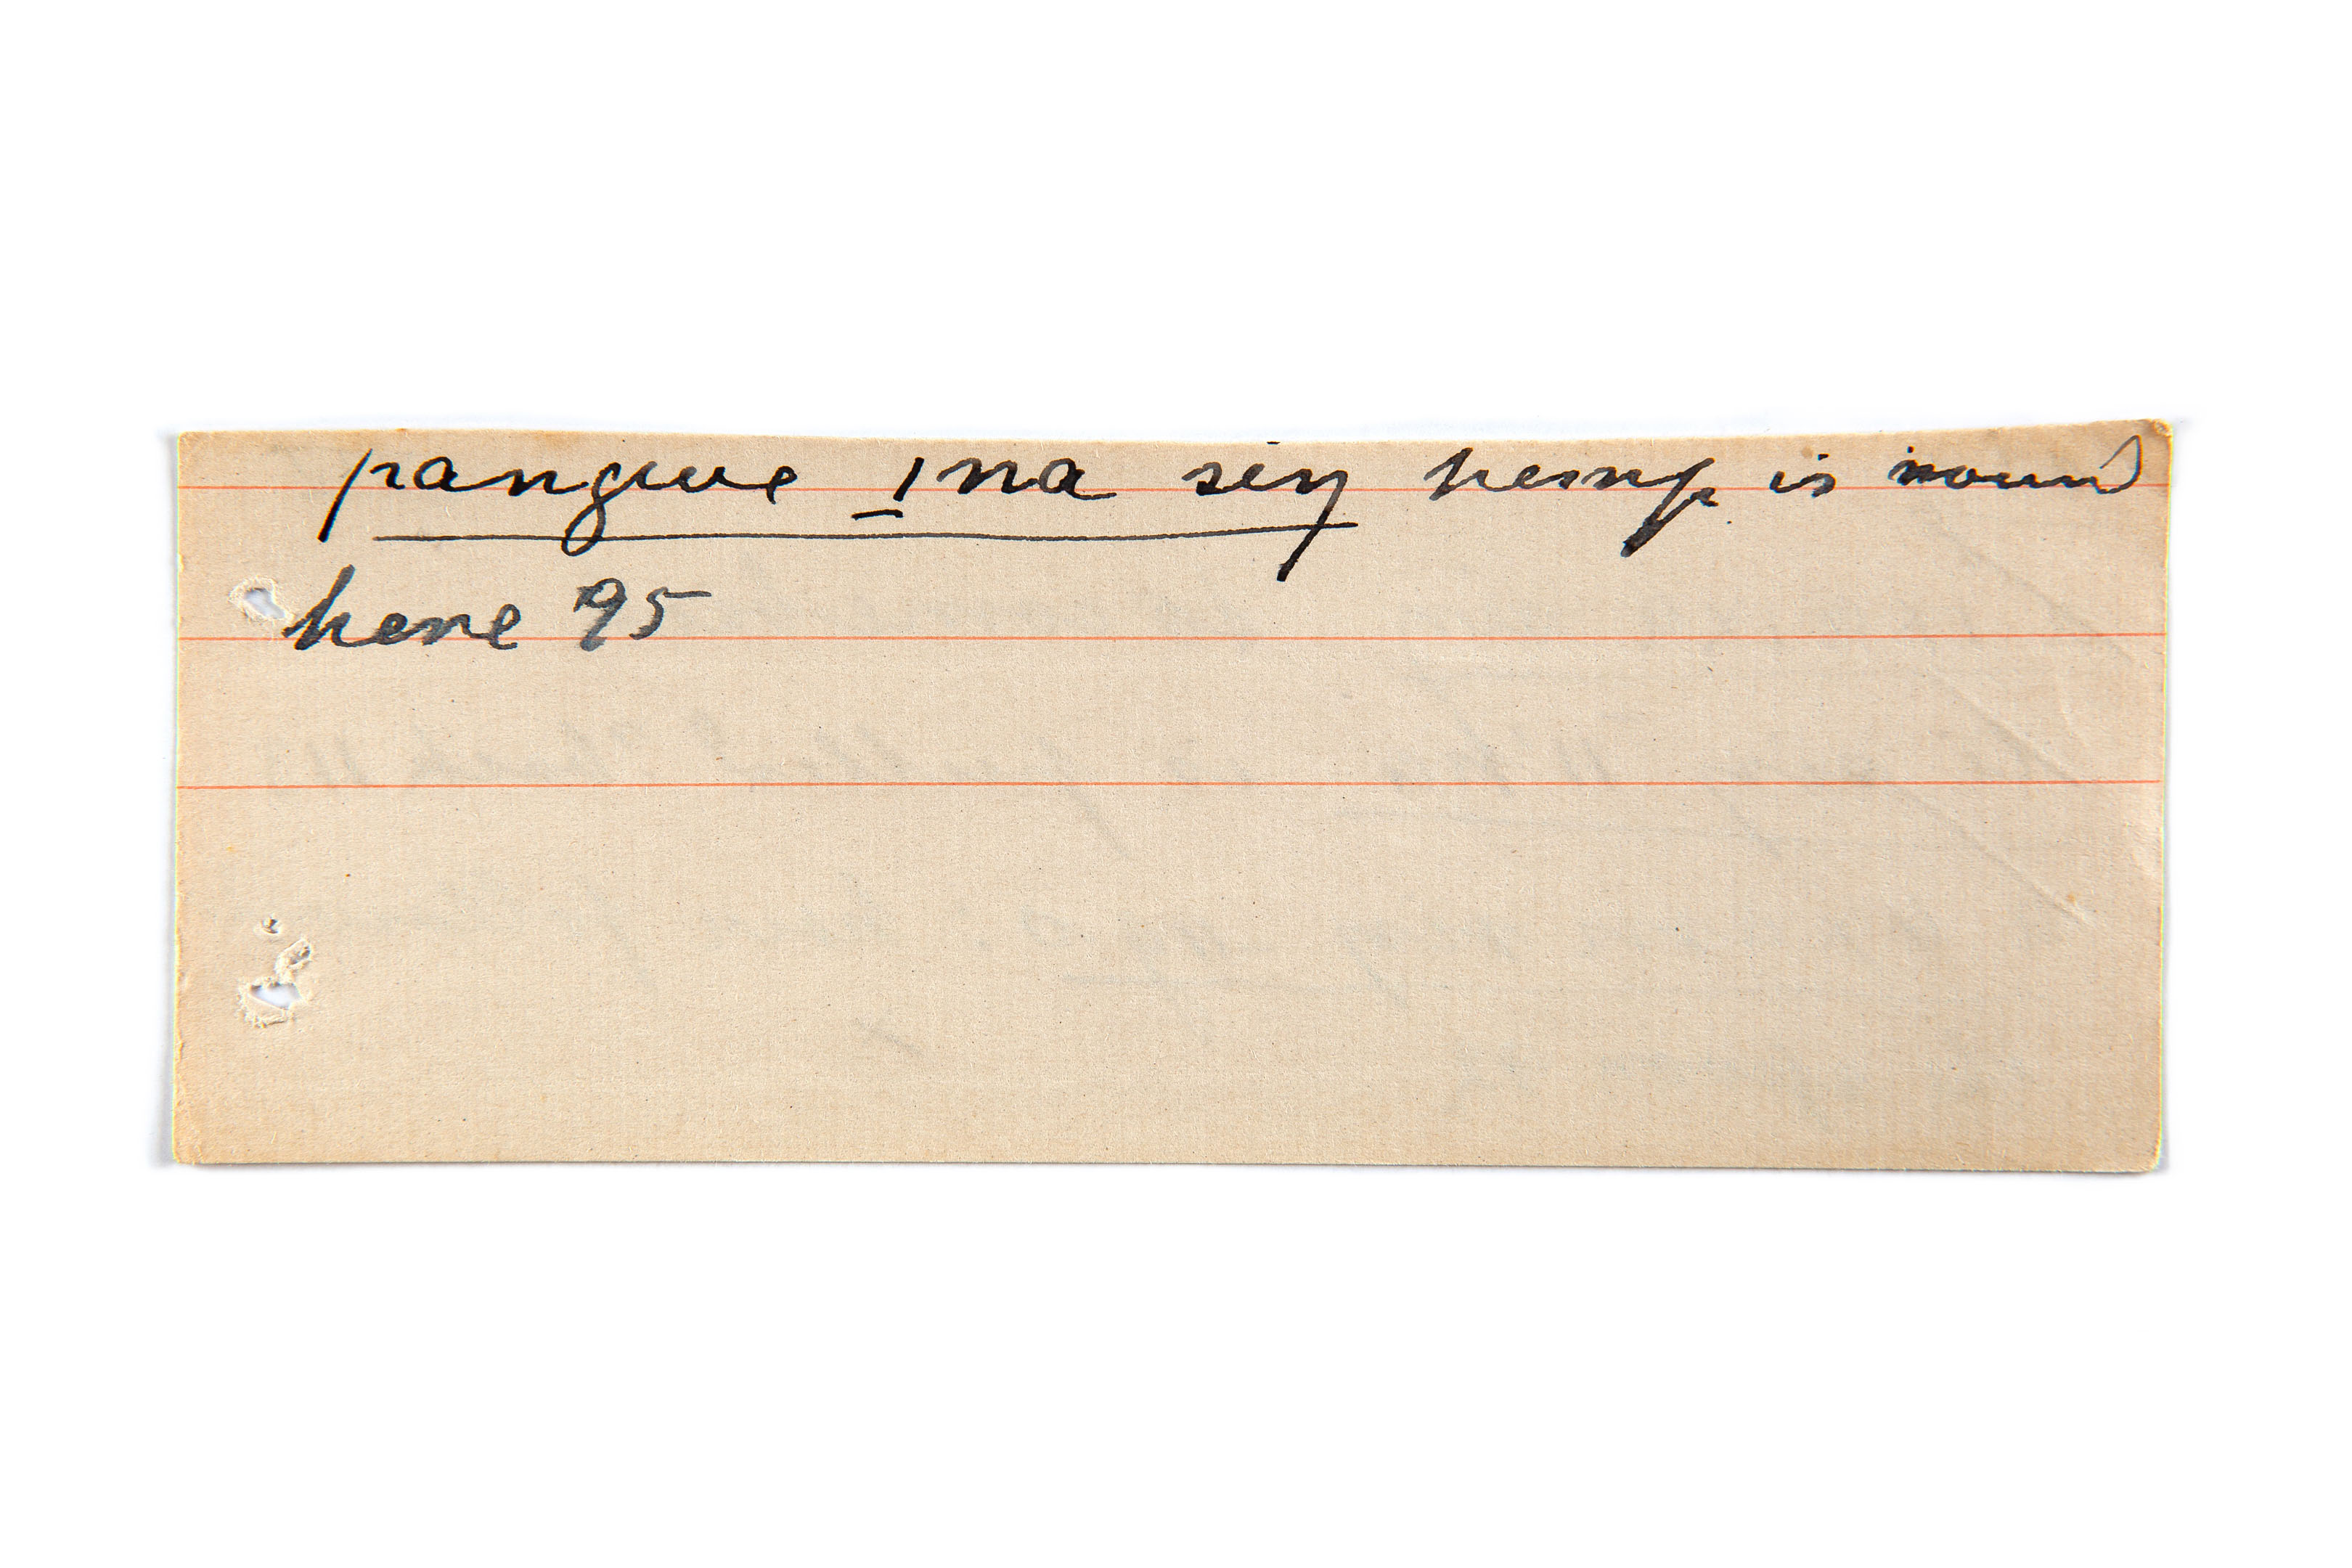 pangwe ına siŋ hemp is round
here 95